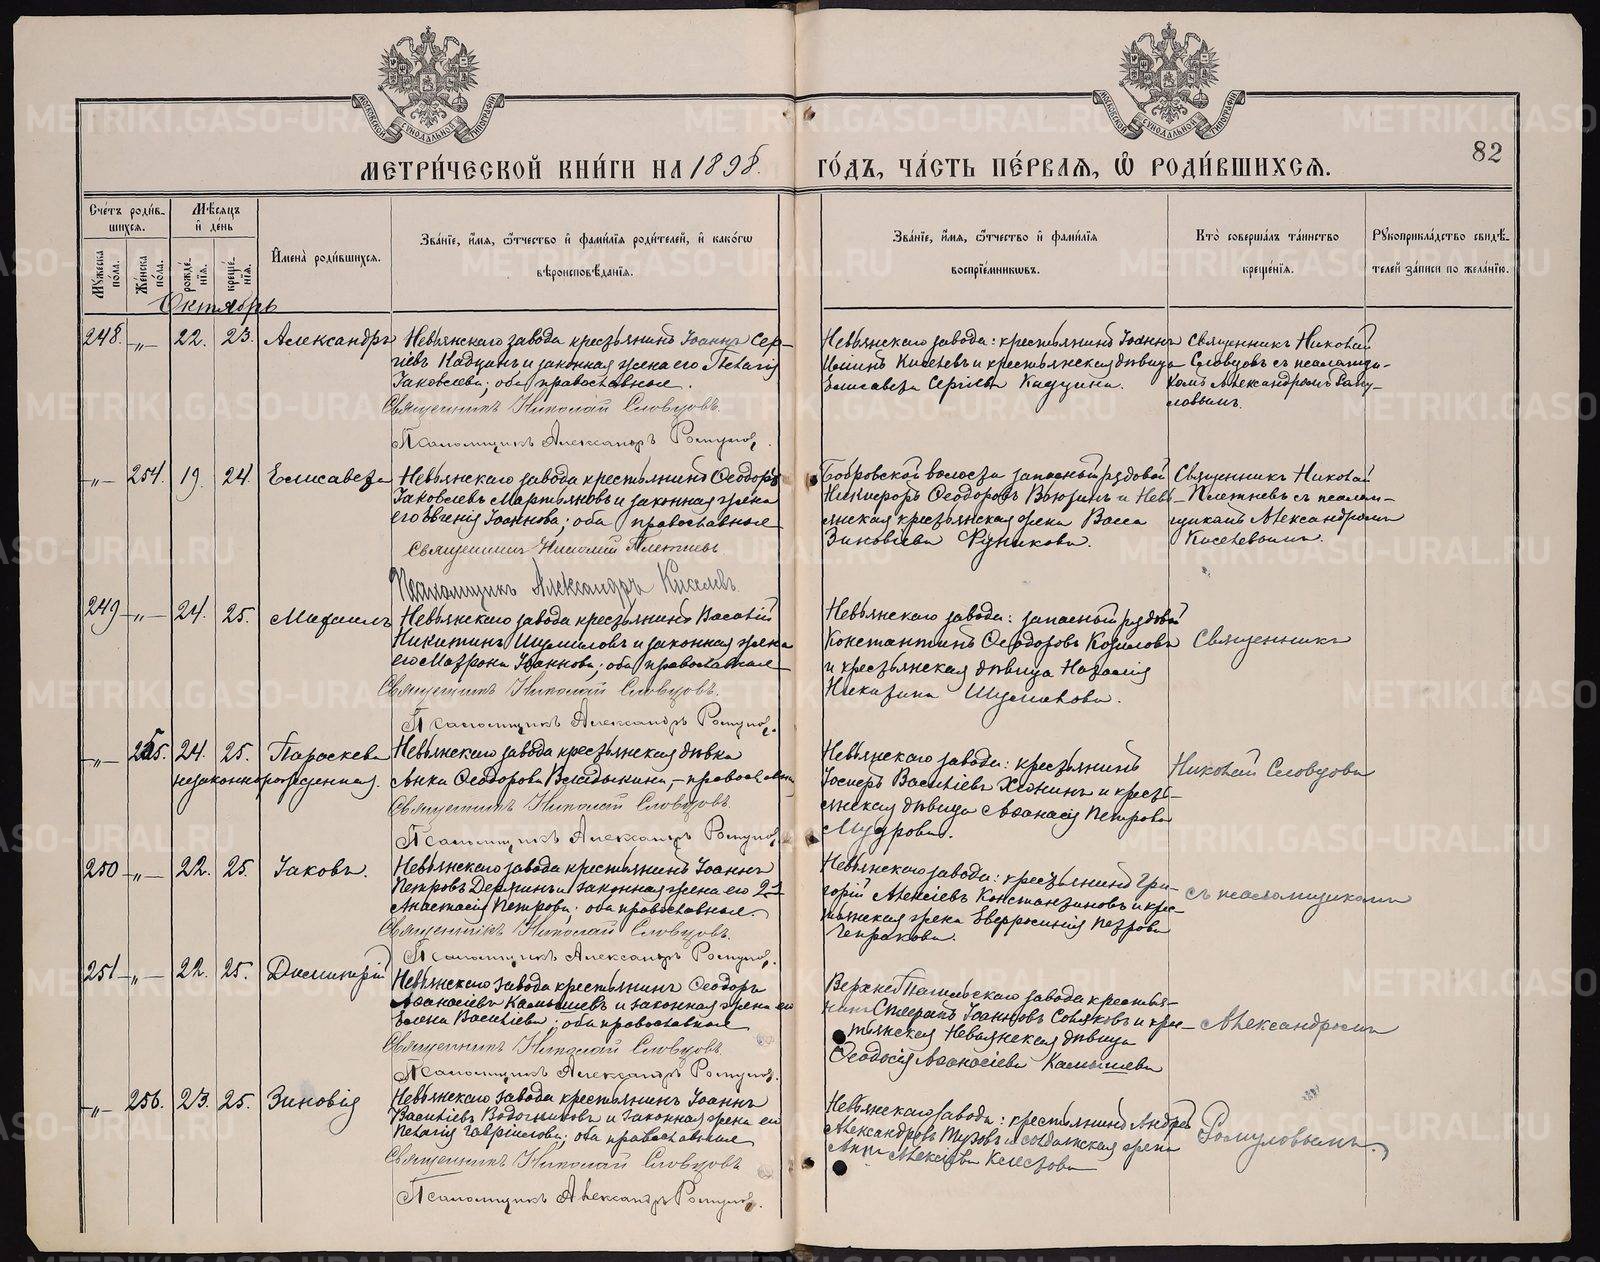 МОСКОВСКОЙ СѴНОДАЛЬНОЙ ТИПОГРАФІИ
МОСКОВСКОЙ СѴНОДАЛЬНОЙ ТИПОГРАФІИ
МЕТРИ́ЧЕСКОЙ КНИ́ГИ НА 1898.
ГО́ДЪ, ЧА́СТЬ ПЕ́РВАѦ, Ѽ РОДИ́ВШИХСѦ.
82
Сче́тъ роди́в-
шихсѧ.
Мѣ́сѧцъ
и҆ де́нь
Му́жеска по́ла.
Же́нска по́ла.
рожде́-нїѧ.
креще́-нїѧ.
И҆мена̀ роди́вшихсѧ.
Зва́нїе, и҆́мѧ, ѻ҆́тчество и҆ фами́лїѧ роди́телей, и҆ како́гѡ
вѣроисповѣ́данїѧ.
Зва́нїе, и҆́мѧ, ѻ҆́тчество и҆ фами́лїѧ
воспрїе́мникѡвъ.
Кто̀ соверша́лъ та́инство
креще́нїѧ.
Рꙋкоприкла́дство свидѣ́-
телей за́писи по жела́нїю.
Октябрь
248. -„- 22. 23. Александръ
Невьянскаго завода крестьянинъ Іоаннъ Сер-
гіевъ Кадцинъ и законная жена его Пелагія
Іаковлева; оба православные.
Священникъ Николай Словцовъ.
Псаломщикъ Александръ Ромулов.
Невьянскаго завода: крестьянинъ Іоаннъ
Киселевъ и крестьянская дѣвица
Елисавета Сергіева Кадцина.
Священникъ Николай
Словцовъ съ псаломщи-
комъ Александромъ Рому-
ловымъ.
-„- 254. 19. 24. Елисавета
Невьянскаго завода крестьянинъ Ѳеодоръ
Іаковлевъ Мартьяновъ и законная жена
его Евгенія Іоаннова; оба православные
Священникъ Николай Плетневъ
Псаломщикъ Александръ Киселевъ
Бобровской волости запасный рядовой
Никифоръ Ѳеодоровъ и Невь-
янская крестьянская жена Васса
Зиновіева
Священникъ Николай
Плетневъ съ псалом-
щикомъ Александромъ
Киселевымъ.
249 -„- 24. 25. Михаилъ
Невьянскаго завода крестьянинъ Василій
Никитинъ Шумиловъ и законная жена
его Матрона Іоаннова; оба православные
Священникъ Николай Словцовъ.
Псаломщикъ Александръ Ромулов.
Невьянскаго завода: запасный рядовой
Константинъ Ѳеодоровъ
и крестьянская дѣвица Наталія
Никитина
Священникъ
-„- 255. 24. 25. Параскева
незаконнорожденная.
Невьянскаго завода крестьянская дѣвка
Анна Ѳеодорова Владыкина, - православная
Священникъ Николай Словцовъ.
Псаломщикъ Александръ Ромулов.
Невьянскаго завода: крестьянинъ
Іосифъ Васильевъ и кресть-
янская дѣвица Аѳанасія Петрова
Мудрова.
Николай Словцовъ
250 -„- 22. 25. Іаковъ.
Невьянскаго завода крестьянинъ Іоаннъ
Петровъ и законная жена его
Анастасія Петрова; оба православные.
Священникъ Николай Словцовъ.
Псаломщикъ Александръ Ромулов.
Невьянскаго завода: крестьянинъ Гри-
горій Алексіевъ Константиновъ и крес-
тьянская жена Евфросинія Петрова
съ псаломщикомъ
251 -„- 22. 25. Димитрій
Невьянскаго завода крестьянинъ Ѳеодоръ
Аѳанасіевъ Камышевъ и законная жена его
Елена Василіева; оба православные
Священникъ Николай Словцовъ.
Псаломщикъ Александръ Ромулов.
Верхне Тагильскаго завода крестья-
нинъ Іоанновъ и крес-
тьянская Невьянская дѣвица
Ѳеодосія Аѳанасіева Камышева
Александромъ
-„- 256. 23. 25. Зиновія
Невьянскаго завода крестьянинъ Іоаннъ
Василіевъ и законная жена его
Пелагія Гавріилова; оба православные
Священникъ Николай Словцовъ
Псаломщикъ Александръ Ромулов.
Невьянскаго завода: крестьянинъ Андрей
Александровъ и солдатская жена
Анна Алексіева
Ромуловымъ.
METRIKI.GASO-URAL.RU